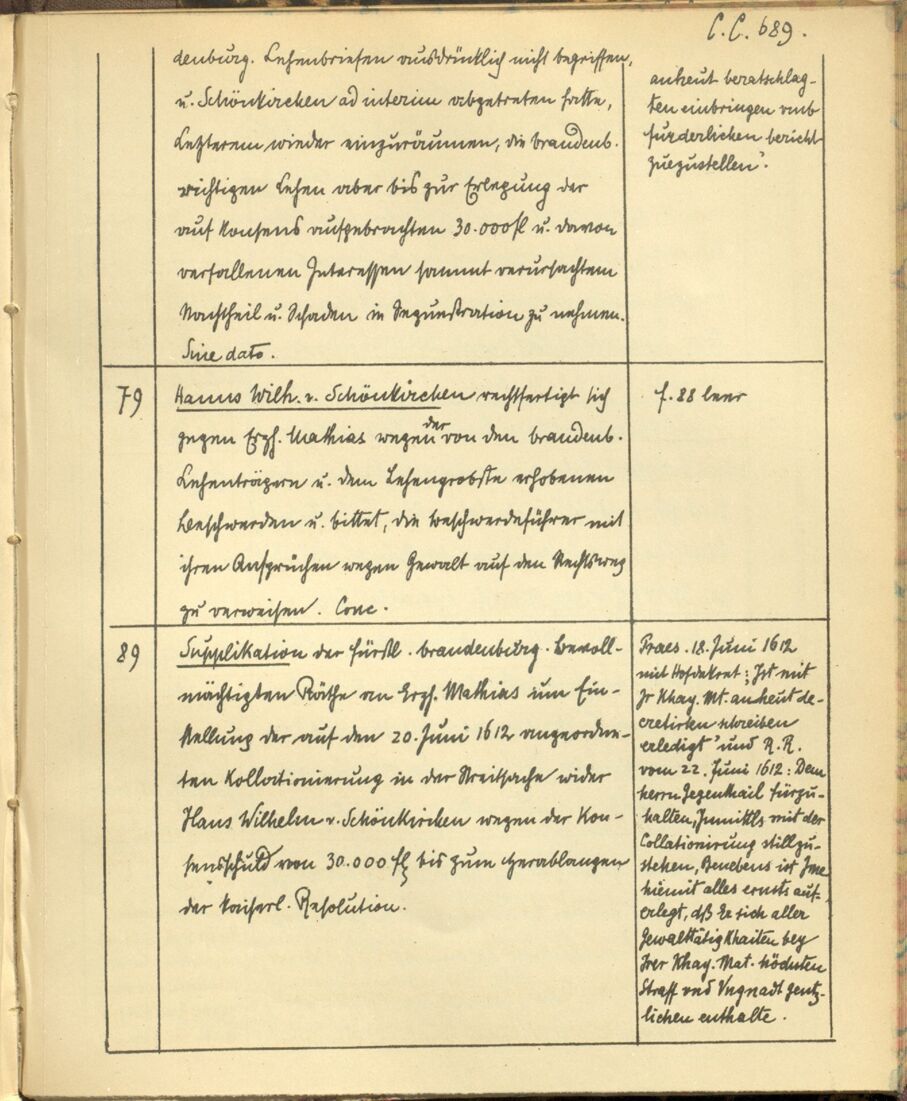 C. C. 689.
denburg. Lehenbriefen ausdrücklich nicht begriffen,
u. Schönkirchen ad interim abgetreten hatte,
Letzterem wieder einzuräumen, die brandenb.
richtigen Lehen aber bis zur Erlegung der
auf Konsens aufgebrachten 30.000 fl u. davon
verfallenen Interessen sammt verursachtem
Nachtheil u. Schaden in Sequestration zu nehmen.
Sine dato.
anheut beratschlag-
ten einbringen vmb
furderlichen bericht
zuezustellen".
79
Hanns Wilh. v. Schönkirchen rechtfertigt sich
gegen Erzh. Mathias wegen der von den brandenb.
Lehenträgern u. dem Lehenprobste erhobenen
Beschwerden u. bittet, die Beschwerdeführer mit
ihren Ansprüchen wegen Gewalt auf den Rechtsweg
zu verweisen. Conc.
f. 88 leer
89
Supplikation der fürstl. brandenburg. Bevoll-
mächtigten Räthe an Erzh. Mathias um Ein-
stellung der auf den 20. Juni 1612 angeordne-
ten Kollationierung in der Streitsache wider
Hans Wilhelm v. Schönkirchen wegen der Kon-
sensschuld von 30.000 fl bis zum Herablangen
der kaiserl. Resolution.
Praes. 18. Juni 1612
mit Hofdekret: Ist mit
Jr Khay. Mt. anheut de-
cretirten schreiben
erledigt" und R. R.
vom 22. Juni 1612: Dem
herrn Gegenthail fürzu-
halten, Inmittls mit der
Collationirung stillzu-
stehen, Benebens ist Ime
hiemit alles ernsts auf-
erlegt, dß Er sich aller
Gewalttätigkhaiten bey
Irer Khay. Mat. höchsten
Straff vnd Vngnadt gentz-
lichen enthalte.